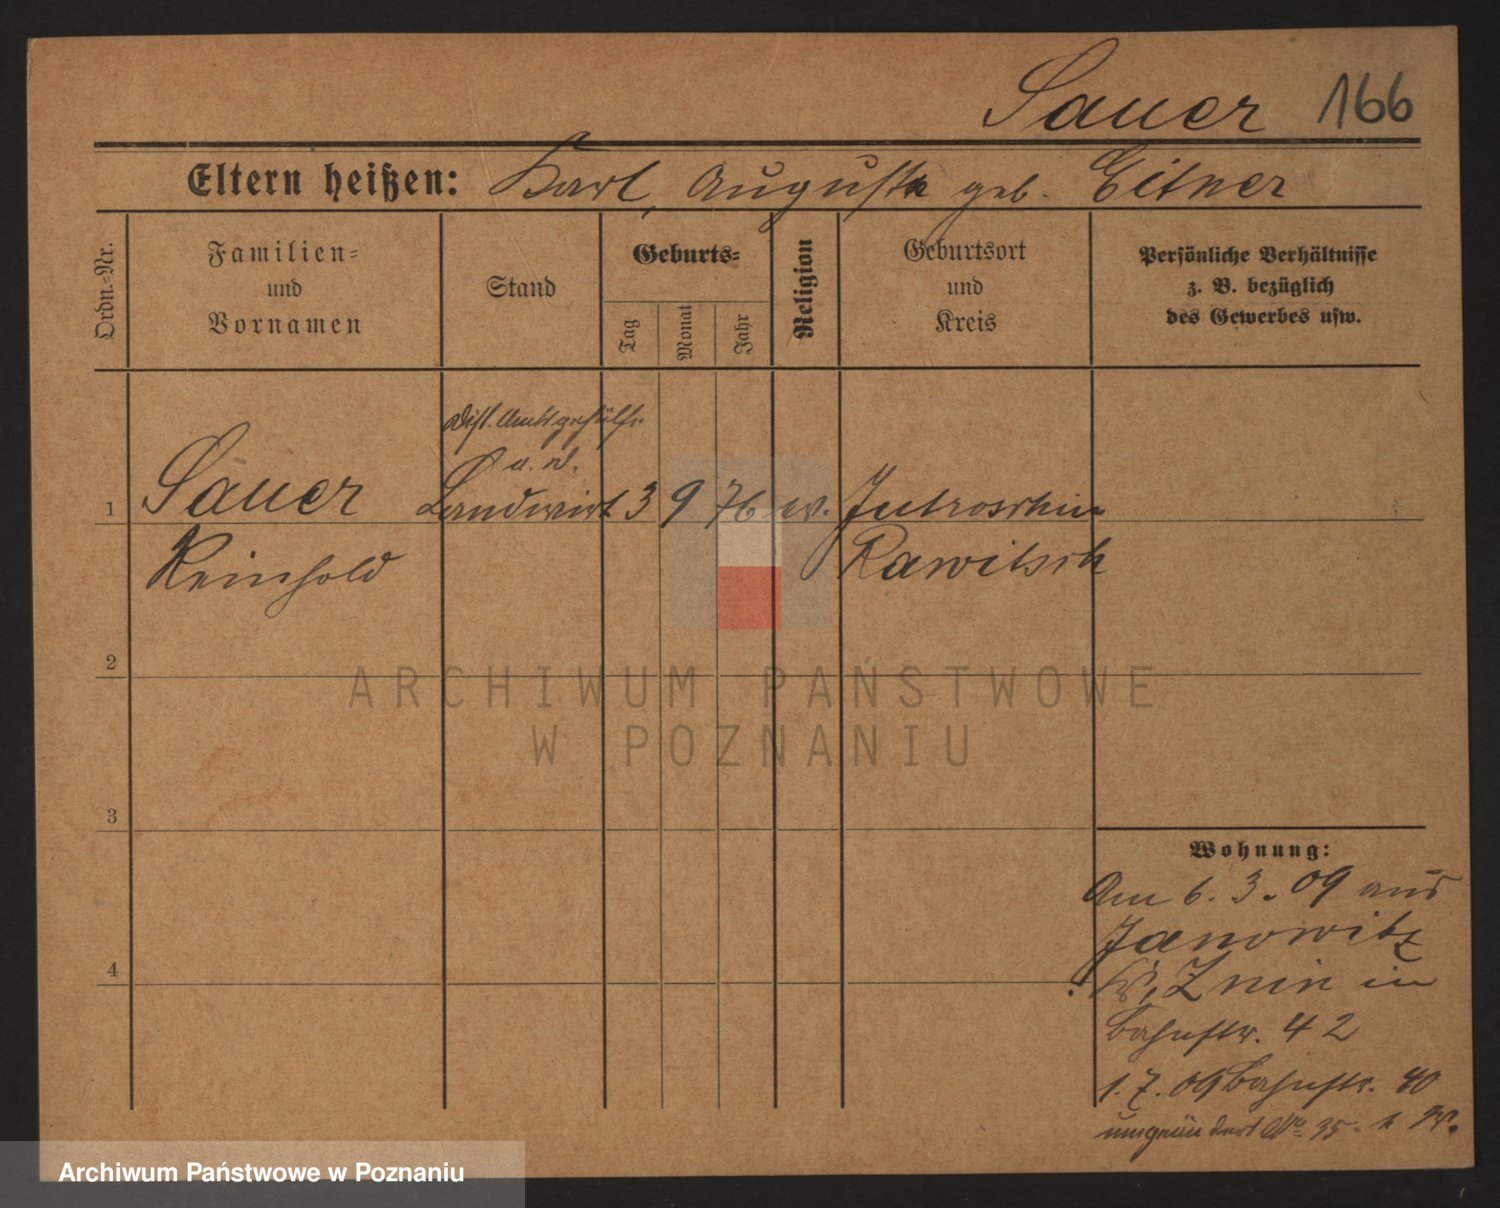 Sauer 166
Eltern heißen: Karl, Auguste geb. Eitner
Ordn.-Nr.
Familien-
und
Vornamen
Stand
Geburts-
Tag
Monat
Jahr
Religion
Geburtsort
und
Kreis
Persönliche Verhältnisse
z. B. bezüglich
des Gewerbes usw.
Dist. Amtsgehülfe
u. d.
1 Sauer Landwirt 3 9 76 ev. Jutroschin
Reinhold Rawitsch
2
3
4
Wohnung:
Am 6. 3. 09 aus
Janowitz
Znin in
Bahnstr. 42
1. 7. 09 Bahnstr. 40
No 35
ARCHIWUM PAŃSTWOWE
W POZNANIU
Archiwum Państwowe w Poznaniu